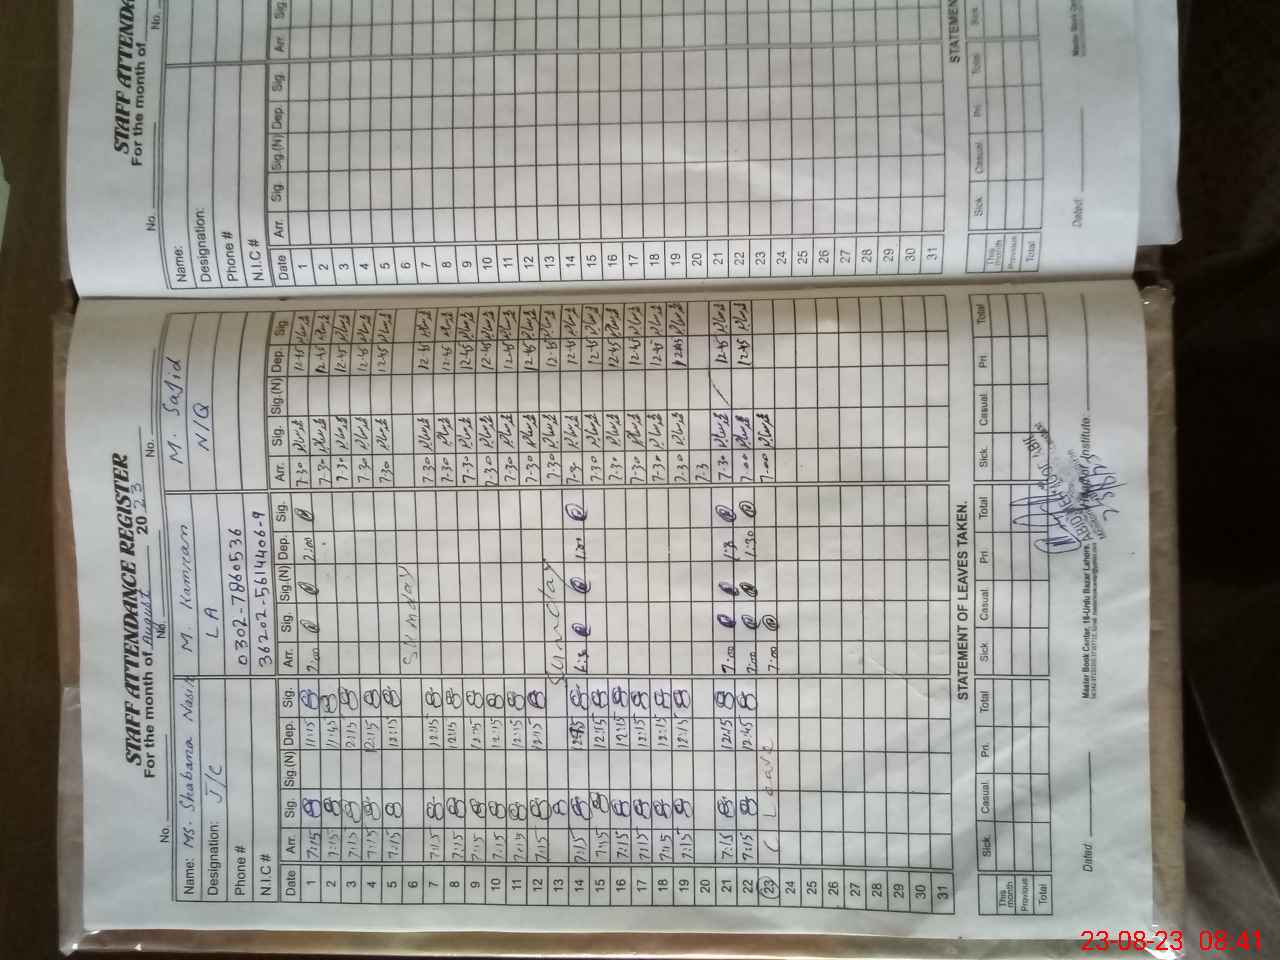 STAFF ATTENDANCE REGISTER
For the month of August 2023
No. No. No.
Name: Ms. Shabana Nasir M. Kamran M. Sajid
Designation: J/C L A N/Q
Phone # 0302-7860536
N.I.C # 36202-5614406-9
Date Arr. Sig. Sig.(N) Dep. Sig. Arr. Sig. Sig.(N) Dep. Sig. Arr. Sig. Sig.(N) Dep. Sig
1 7:15 11:15 7:00 1:00 7-30 12-45
2 7:15 11:45 7-30 12-45
3 7:15 12:15 7-30 12-45
4 7:15 12:15 7-30 12-45
5 7:15 12:15 7-30 12-45
6 Sunday
7 7:15 12:15 7-30 12-45
8 7:15 12:15 7-30 12-45
9 7:15 12:15 7-30 12-45
10 7:15 12:15 7-30 12-45
11 7:15 12:15 7-30 12-45
12 7:15 12:15 7-30 12-45
13 Sunday 7-30 12-45
14 7:15 1:00 7-30 12-45
15 7:15 12:15 7-30 12-45
16 7:15 12:15 7-30 12-45
17 7:15 12:15 7-30 12-45
18 7:15 12:15 7-30 12-45
19 7:15 12:15 7-30 12-45
20 7-3
21 7:15 12:15 7:00 7-30 12-45
22 7:15 12:45 7:00 1:30 7-00 12-45
23 C Leave 7:00 7-00
24
25
26
27
28
29
30
31
STATEMENT OF LEAVES TAKEN.
Sick Casual Pri. Total Sick Casual Pri. Total Sick Casual Pri. Total
This month
Previous
Total
Dated: Master Book Center, 16-Urdu Bazar Lahore. Institute
STAFF ATTENDA
For the month of
No. No.
Name:
Designation:
Phone #
N.I.C #
Date Arr. Sig. Sig.(N) Dep. Sig. Arr. Sig.
1
2
3
4
5
6
7
8
9
10
11
12
13
14
15
16
17
18
19
20
21
22
23
24
25
26
27
28
29
30
31
STATEMEN
Sick Casual Pri. Total Sick
This month
Previous
Total
Dated: Master Book Cen
23-08-23 08:41